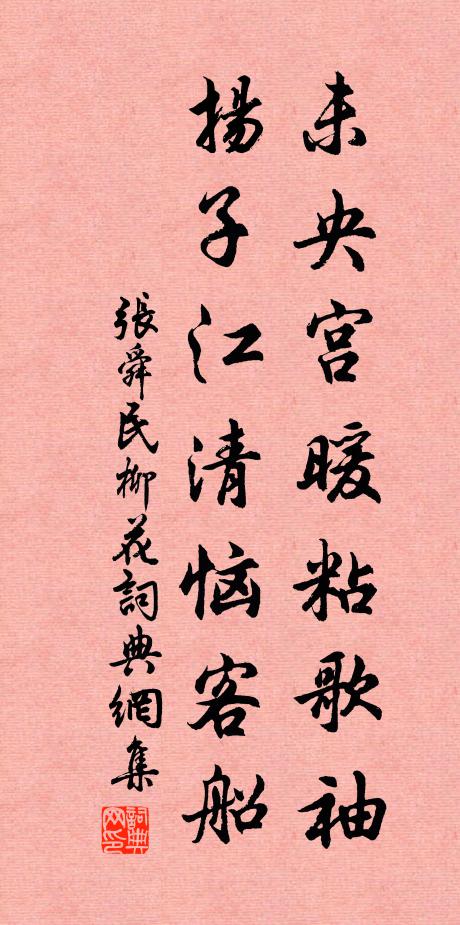 未央宫暖粘歌袖
揚子江清恼客船
張舜民柳花詞典網集
詞典网印